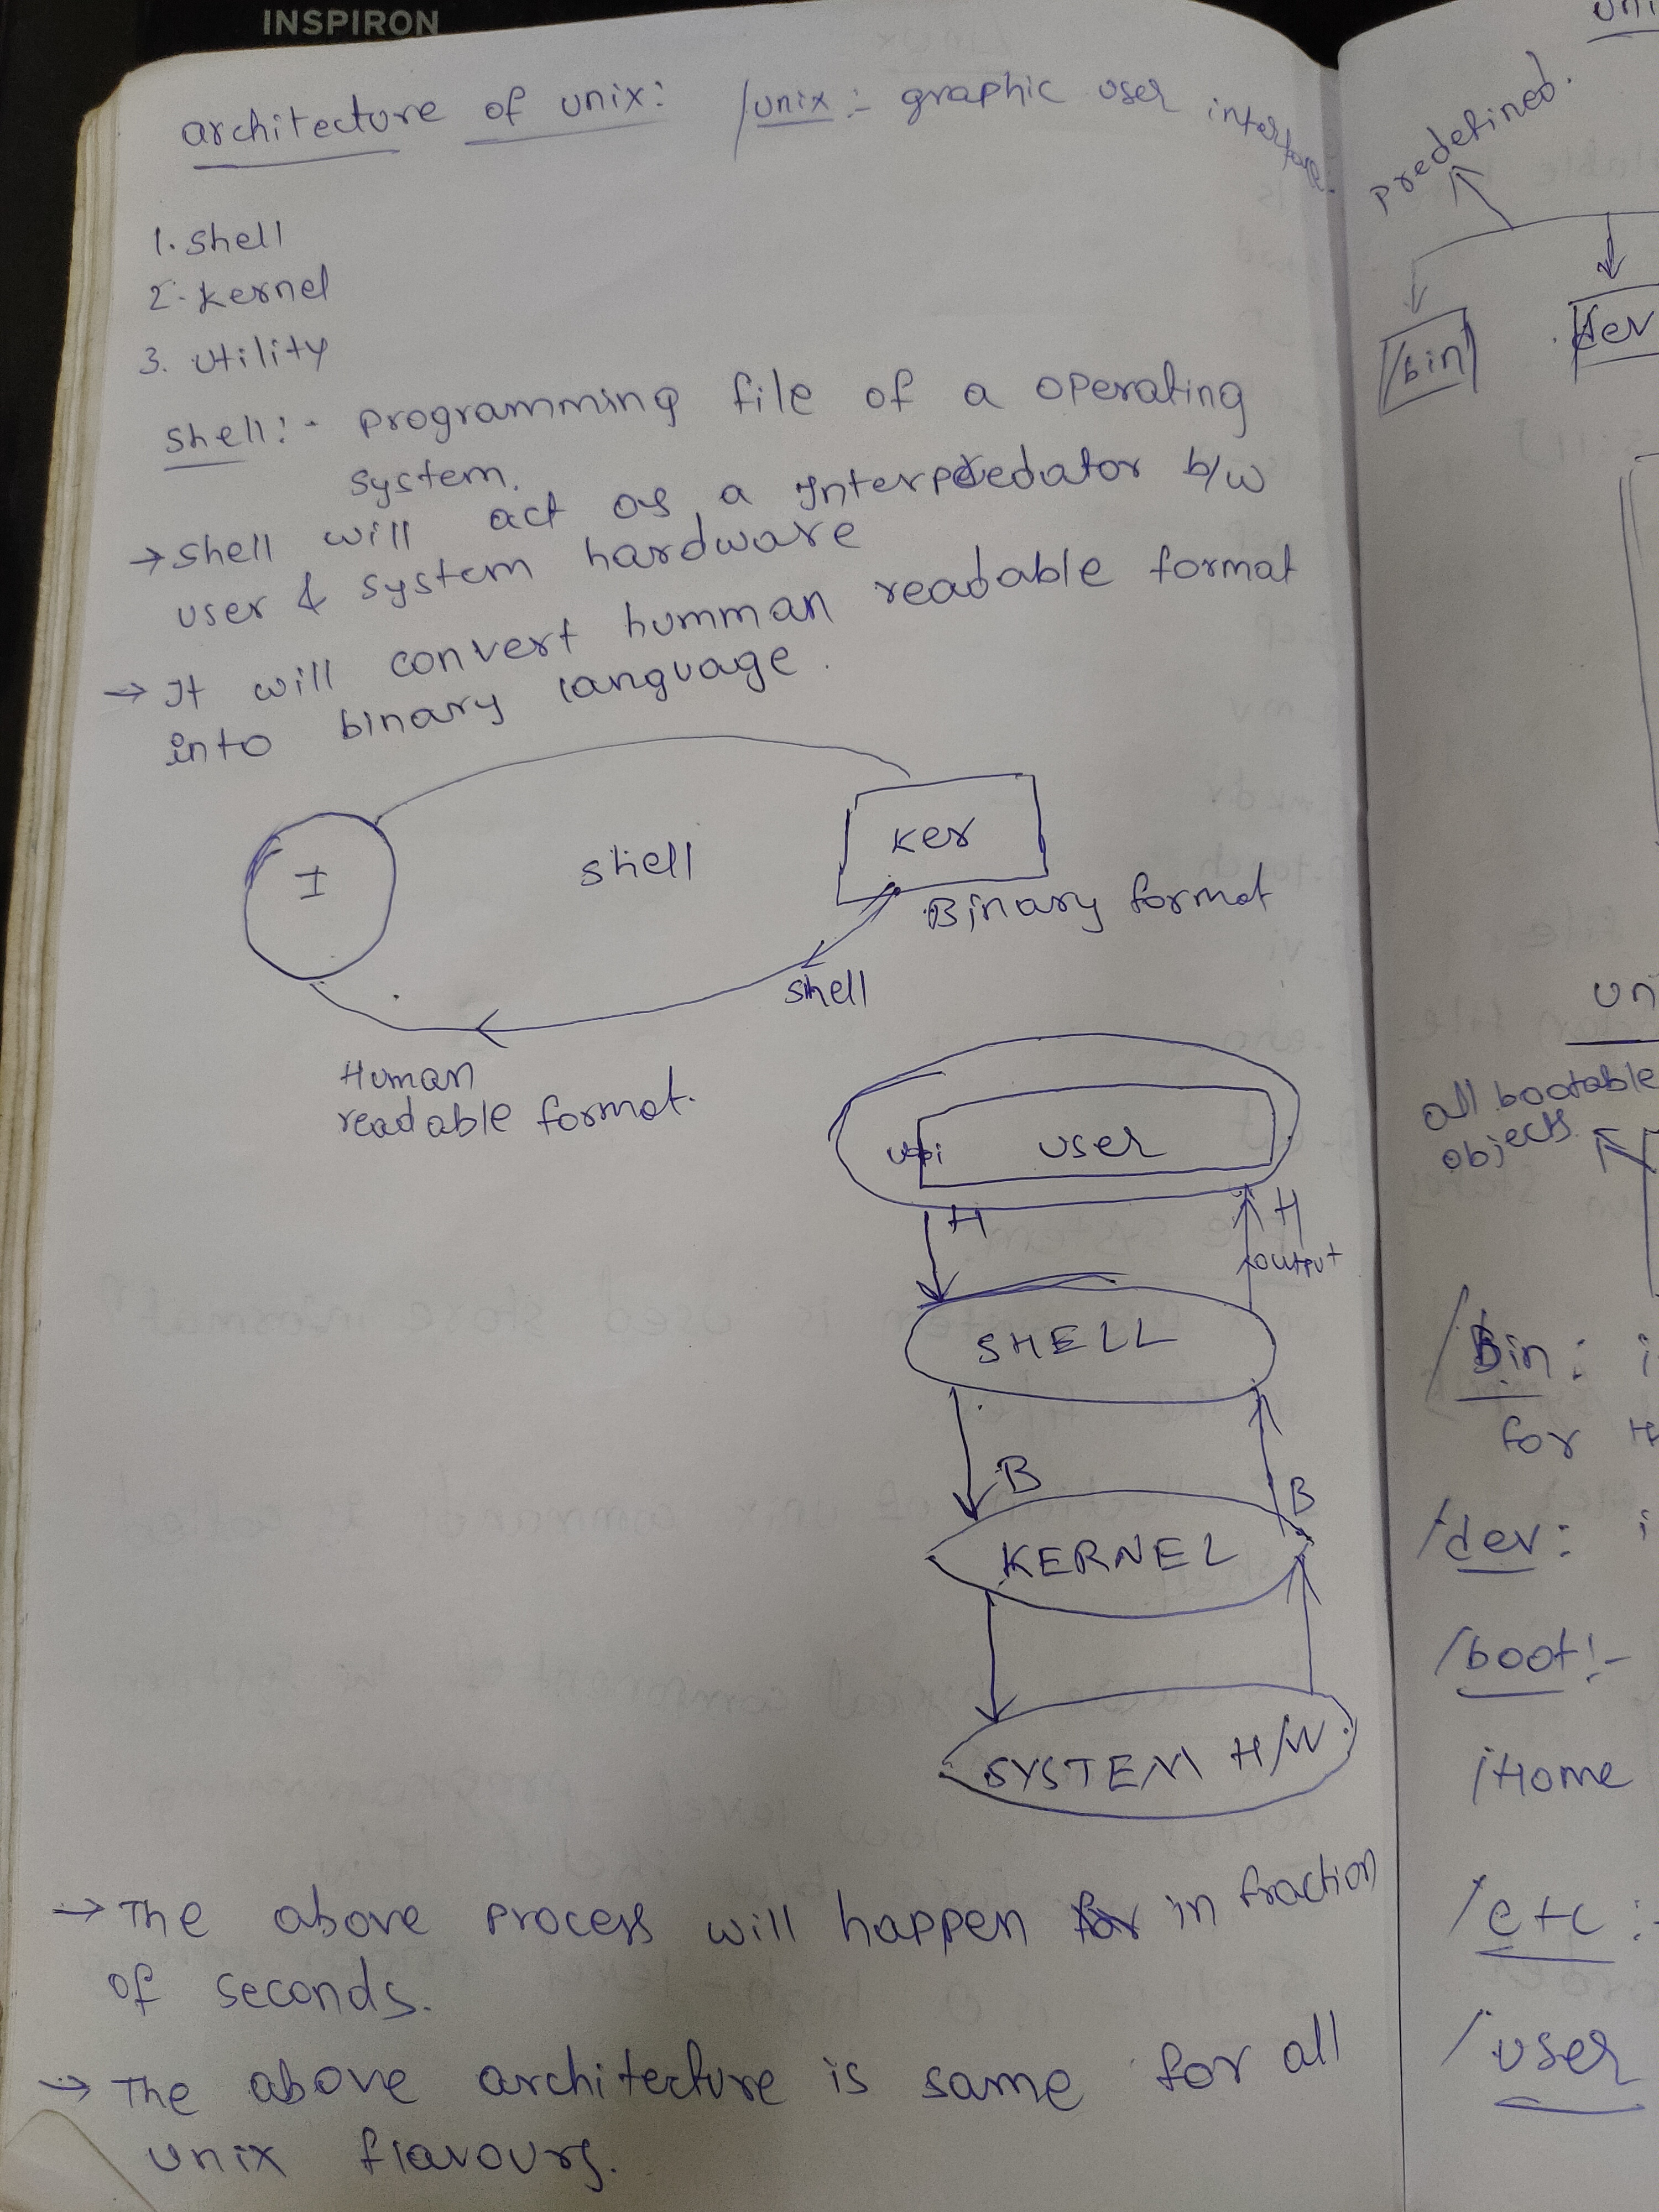 INSPIRON
architecture of unix: /unix :- graphic user interface.
1. shell
2. kernel
3. utility
shell:- programming file of a operating
system.
→ shell will act as a Interpredator b/w
user & system hardware
→ It will convert humman readable format
into binary language.
I
shell
Ker
Binary format
shell
Human
readable format.
user
H
H
output
SHELL
B
B
KERNEL
SYSTEM H/W
→ The above process will happen in fraction
of seconds.
→ The above architecture is same for all
unix flavours.
predefined.
/bin
/dev
un
all bootable
objects.
/Bin: i
for H
/dev: i
/boot:-
/Home
/etc:-
/user